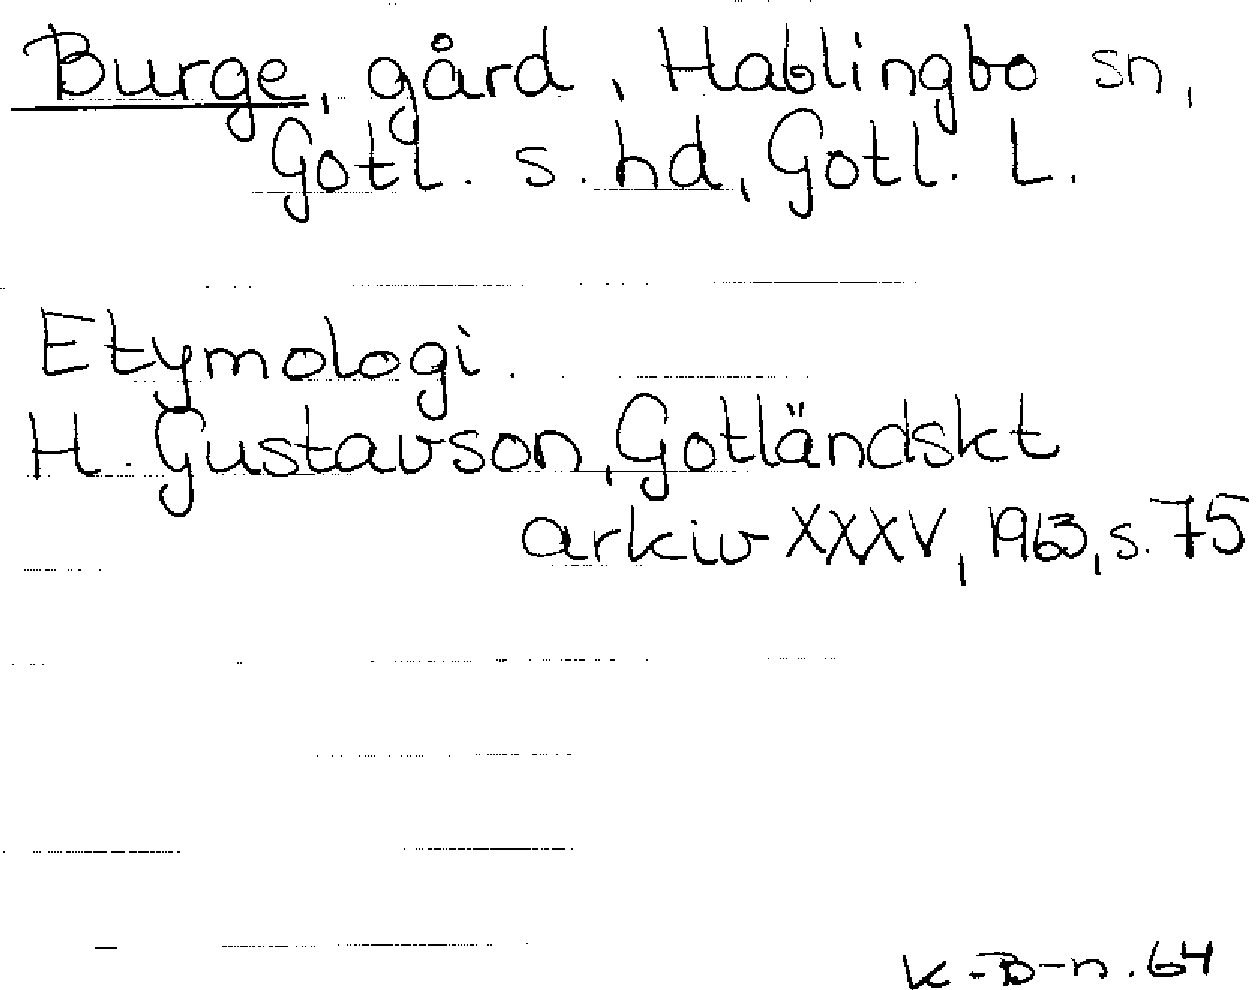 Burge, gård, Hablingbo sn,
Gotl. s. hd, Gotl. L.
Etymologi.
H. Gustavson, Gotländskt
arkiv XXXV, 1963, s. 75
K-B-n. 64